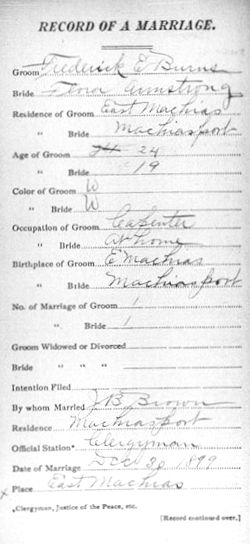 RECORD OF A MARRIAGE.
Groom Frederick E Burns
Bride Flora Armstrong
Residence of Groom East Machias
" Bride Machiasport
Age of Groom 24
" Bride 19
Color of Groom W
" Bride W
Occupation of Groom Capenter
" Bride At home
Birthplace of Groom E Machias
" Bride Machiasport
No. of Marriage of Groom 1
" Bride 1
Groom Widowed or Divorced
Bride " " "
Intention Filed
By whom Married J B Brown
Residence Machiasport
Official Station* Clergyman
Date of Marriage Dec 30 1899
x Place East Machias
*Clergyman, Justice of the Peace, etc.
[Record continued over.]